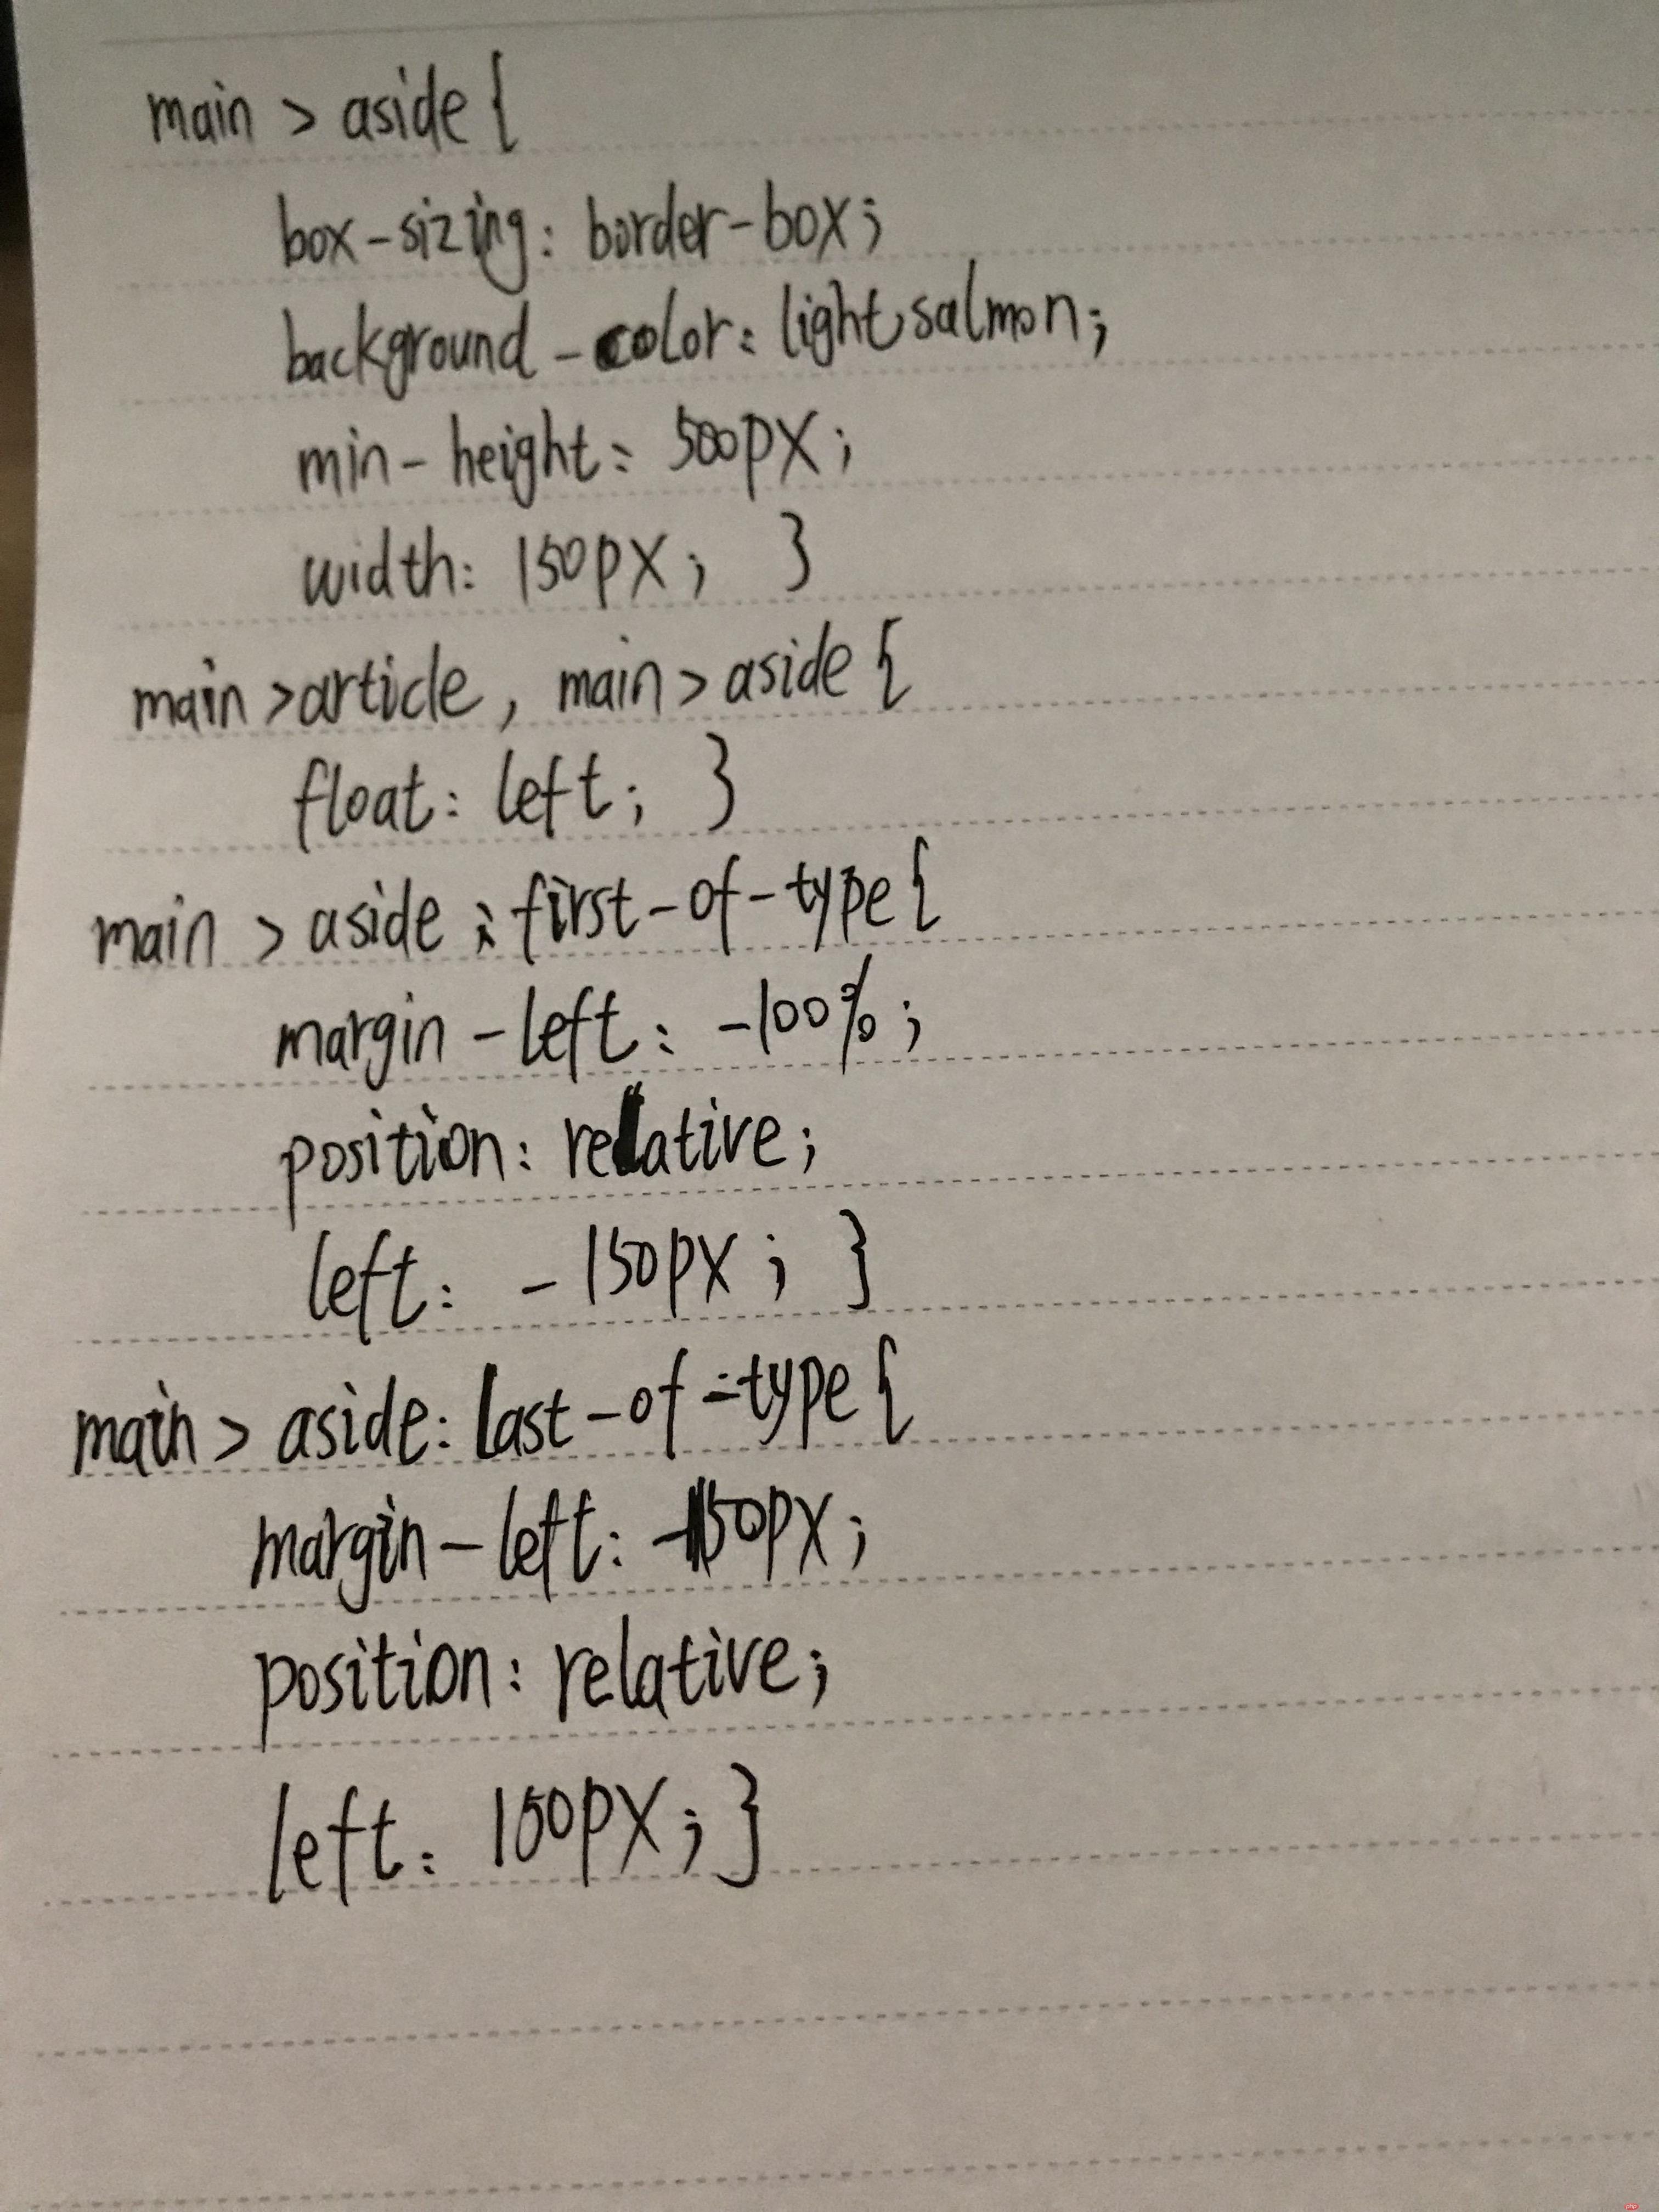 main > aside {
box-sizing: border-box;
background-color: lightsalmon;
min-height: 500px;
width: 150px; }
main >article, main > aside {
float: left; }
main > aside :first-of-type {
margin-left: -100%;
position: relative;
left: -150px; }
main > aside: last-of-type {
margin-left: -150px;
position: relative;
left: 150px; }